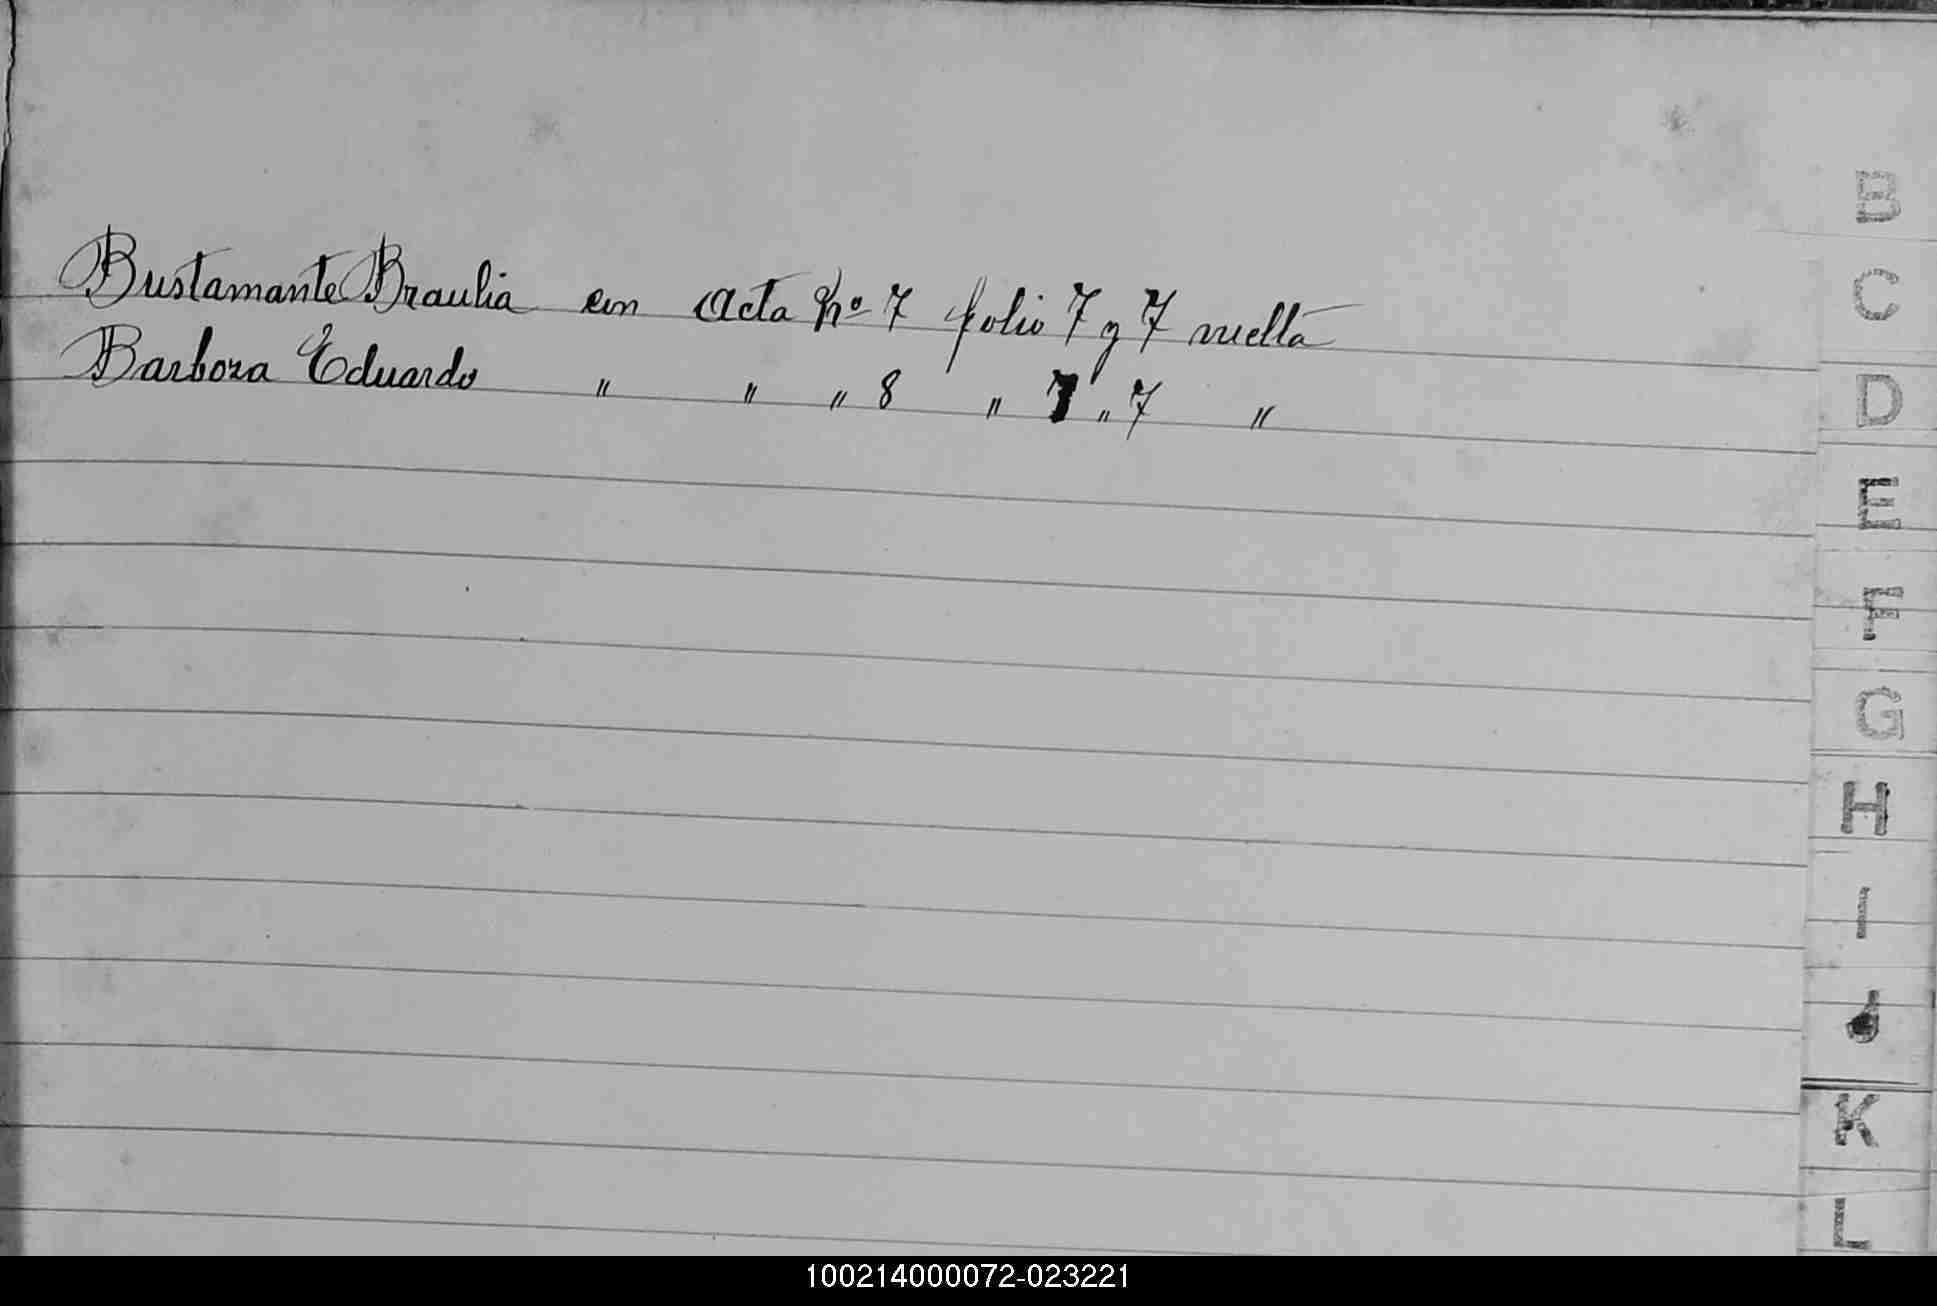 Bustamante Braulia en Acta Nº 7 folio 7 y 7 vuelta
Barboza Eduardo " " " 8 " 7 " 7 "
B
C
D
E
F
G
H
I
J
K
L
100214000072-023221